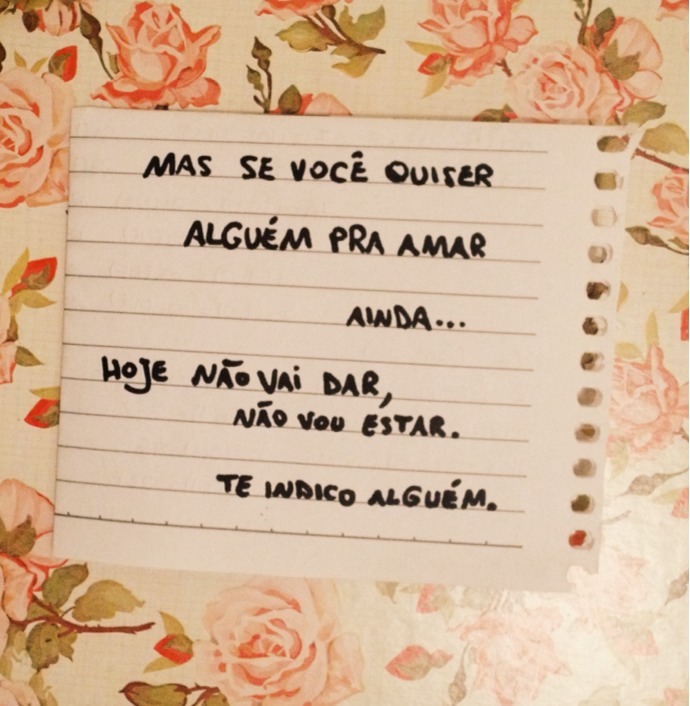 MAS SE VOCÊ QUISER
ALGUÉM PRA AMAR
AINDA...
HOJE NÃO VAI DAR,
NÃO VOU ESTAR.
TE INDICO ALGUÉM.